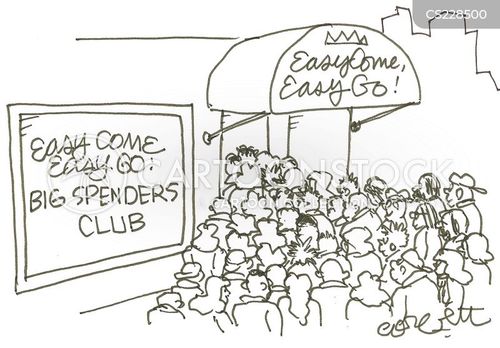 CS228500
Easy Come,
Easy Go!
EASY COME
EASY GO:
BIG SPENDERS
CLUB
CARTOONSTOCK